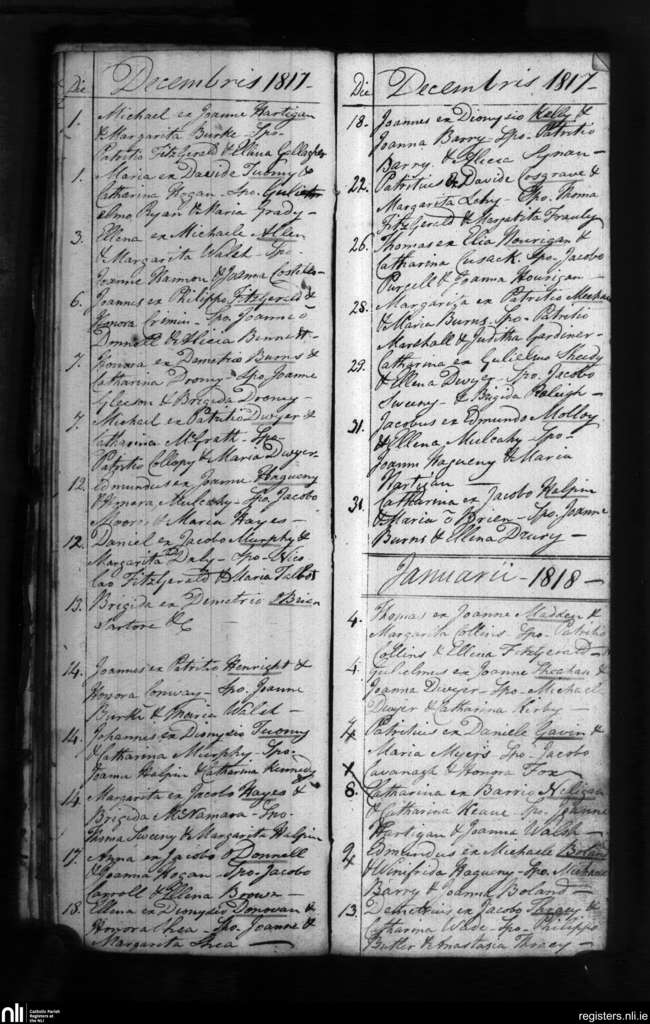 Die Decembris 1817
1. Michael ex Joanne Hartigan
& Margarita Burke - Spo-
Patritio FitzGerald & Ellena Gallagher
1. Maria ex Davide Tuomy &
Catharina Hogan - Spo. Guliel
elmo Ryan & Maria Grady -
3. Ellena ex Michaele Allen
& Margarita Walsh - Spo-
Joanne Hannon & Joanna Costillo -
6. Joannes ex Philippo FitzGerald &
Honora Crimin - Spo. Joanne O
Donnell & Alicia Bennett -
7. Honora ex Demetrio Burns &
Catharina Droney - Spo. Joanne
Gleeson & Brigida Droney -
7. Michael ex Patritio Dwyer &
Catharina McGrath - Spo-
Patritio Collopy & Maria Dwyer
12. Edmundus ex Joanne Hagueny
& Honora Mulcahy - Spo. Jacobo
Moore & Maria Hayes -
12. Daniel ex Jacobo Murphy &
Margarita Daly - Spo- Nico
lao FitzGerald & Maria Talbot
13. Brigida ex Demetrio OBrien
Sartore &c
14. Joannes ex Patritio Henright &
Honora Conway - Spo. Joanne
Burke & Maria Walsh -
14. Johannes ex Dionysio Tuomy
& Catharina Murphy - Spo-
Joanne Halpin & Catharina Kennedy
14. Margarita ex Jacobo Hayes &
Brigida McNamara - Spo-
Thoma Sweeny & Margarita Halpin
17. Anna ex Jacobo O Donnell
& Joanna Hogan - Spo- Jacobo
Carroll & Ellena Brown -
18. Ellena ex Dionysio Donovan &
Honora Shea - Spo. Joanne &
Margarita Shea -
Die Decembris 1817
18. Joannes ex Dionysio Kelly &
Joanna Barry - Spo- Patritio
Barry & Alicia Lynan -
22. Patritius ex Davide Cosgrave &
Margarita Lehy - Spo. Thoma
FitzGerald & Margarita Frauley
26. Thomas ex Elia Hourigan &
Catharina Cusack. Spo. Jacobo
Purcell & Joanna Hourigan -
28. Margarita ex Patritio Meehan
& Maria Burns. Spo - Patritio
Marshall & Juditha Gardiner -
29. Catharina ex Gulielmo Sheedy
& Ellena Dwyer - Spo. Jacobo
Sweeny - & Brigida Raleigh -
31. Jacobus ex Edmundo Molloy
& Ellena Mulcahy - Spo -
Joanne Hagueny & Maria
Hartigan -
31. Catharina ex Jacobo Halpin
& Maria O Brien - Spo. Joanne
Burns & Ellena Drury -
Januarii - 1818 -
4. Thomas ex Joanne Madden &
Margarita Collins Spo. Patritio
Collins & Ellena Fitzgerald -
4. Gulielmus ex Joanne Sheahan &
Joanna Dwyer - Spo- Michael
Dwyer & Catharina Kirby -
4 Patritius ex Daniele Gavin &
Maria Myers Spo. Jacobo
Cavanagh & Honora Fox
8. Catharina ex Barrio Neligan
& Catharina Keane Spo. Joanne
Hartigan & Joanna Walsh -
9 Edmundus ex Michaele Boland
& Winifrida Hagueny - Spo. Michaele
Barry & Joanna Boland -
13. Demetrius ex Jacobo Thracy &
Catharina Wade - Spo - Philippo
Butler & Anastasia Thracy -
nli
Catholic Parish
Registers at
the NLI
registers.nli.ie